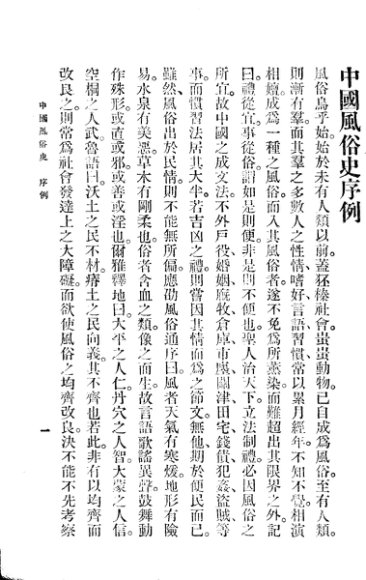 中國風俗史序例
風俗烏乎始。始於未有人類以前。蓋狉榛社會。蚩蚩動物。已自成爲風俗。至有人類。
則漸有羣。而其羣之多數人之性情、嗜好、言語、習慣。常以累月經年。不知不覺。相演
相嬗。成爲一種之風俗。而入其風俗者。遂不免爲所薰染。而難超出其限界之外。記
曰。禮從宜。事從俗。謂如是則便。非是則不便也。聖人治天下。立法制禮。必因風俗之
所宜。故中國之成文法。不外戶役、婚姻、廐牧、倉庫、市廛、關津、田宅、錢債、犯姦、盜賊、等
事。而慣習法居其大半。若吉凶之禮。則嘗因其情而爲之節文。無他。期於便民而已。
雖然。風俗出於民情。則不能無所偏。應劭風俗通序曰。風者天氣有寒煖。地形有險
易。水泉有美惡。草木有剛柔也。俗者含血之類。像之而生。故言語歌謠異聲。鼓舞動
作殊形。或直或邪。或善或淫也。爾雅釋地曰。大平之人仁。丹穴之人智。大蒙之人信。
空桐之人武。魯語曰。沃土之民不材。瘠土之民向義。其不齊也若此。非有以均齊而
改良之。則常爲社會發達上之大障礙。而欲使風俗之均齊改良。決不能不先考察
中國風俗史 序例
一